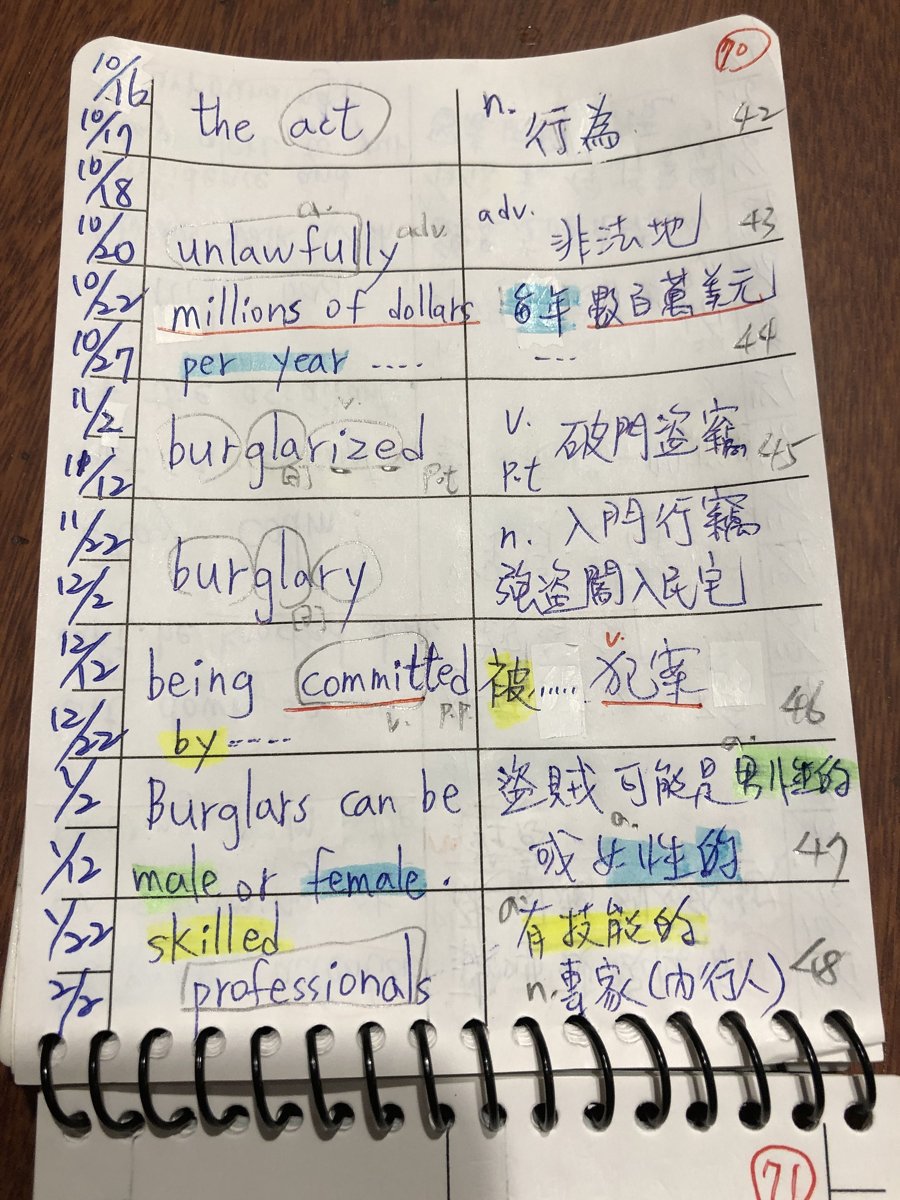 70
10/16
10/17
the act
n. 行為
42
10/18
10/20
a.
unlawfully adv.
adv. 非法地
43
10/22
10/27
millions of dollars
per year ....
每年 數百萬美元
....
44
11/2
11/12
v.
burglarized
p.t
v.
p.t
破門盜竊
45
11/22
12/2
burglary
n. 入門行竊
強盜闖入民宅
12/12
12/22
being committed
v. p.p.
by ....
被..... 犯案
v.
46
1/2
1/12
Burglars can be
male or female.
盜賊可能是男性的
a.
或女性的
a.
47
1/22
2/2
skilled
professionals
a. 有技能的
n. 專家(內行人)
48
71